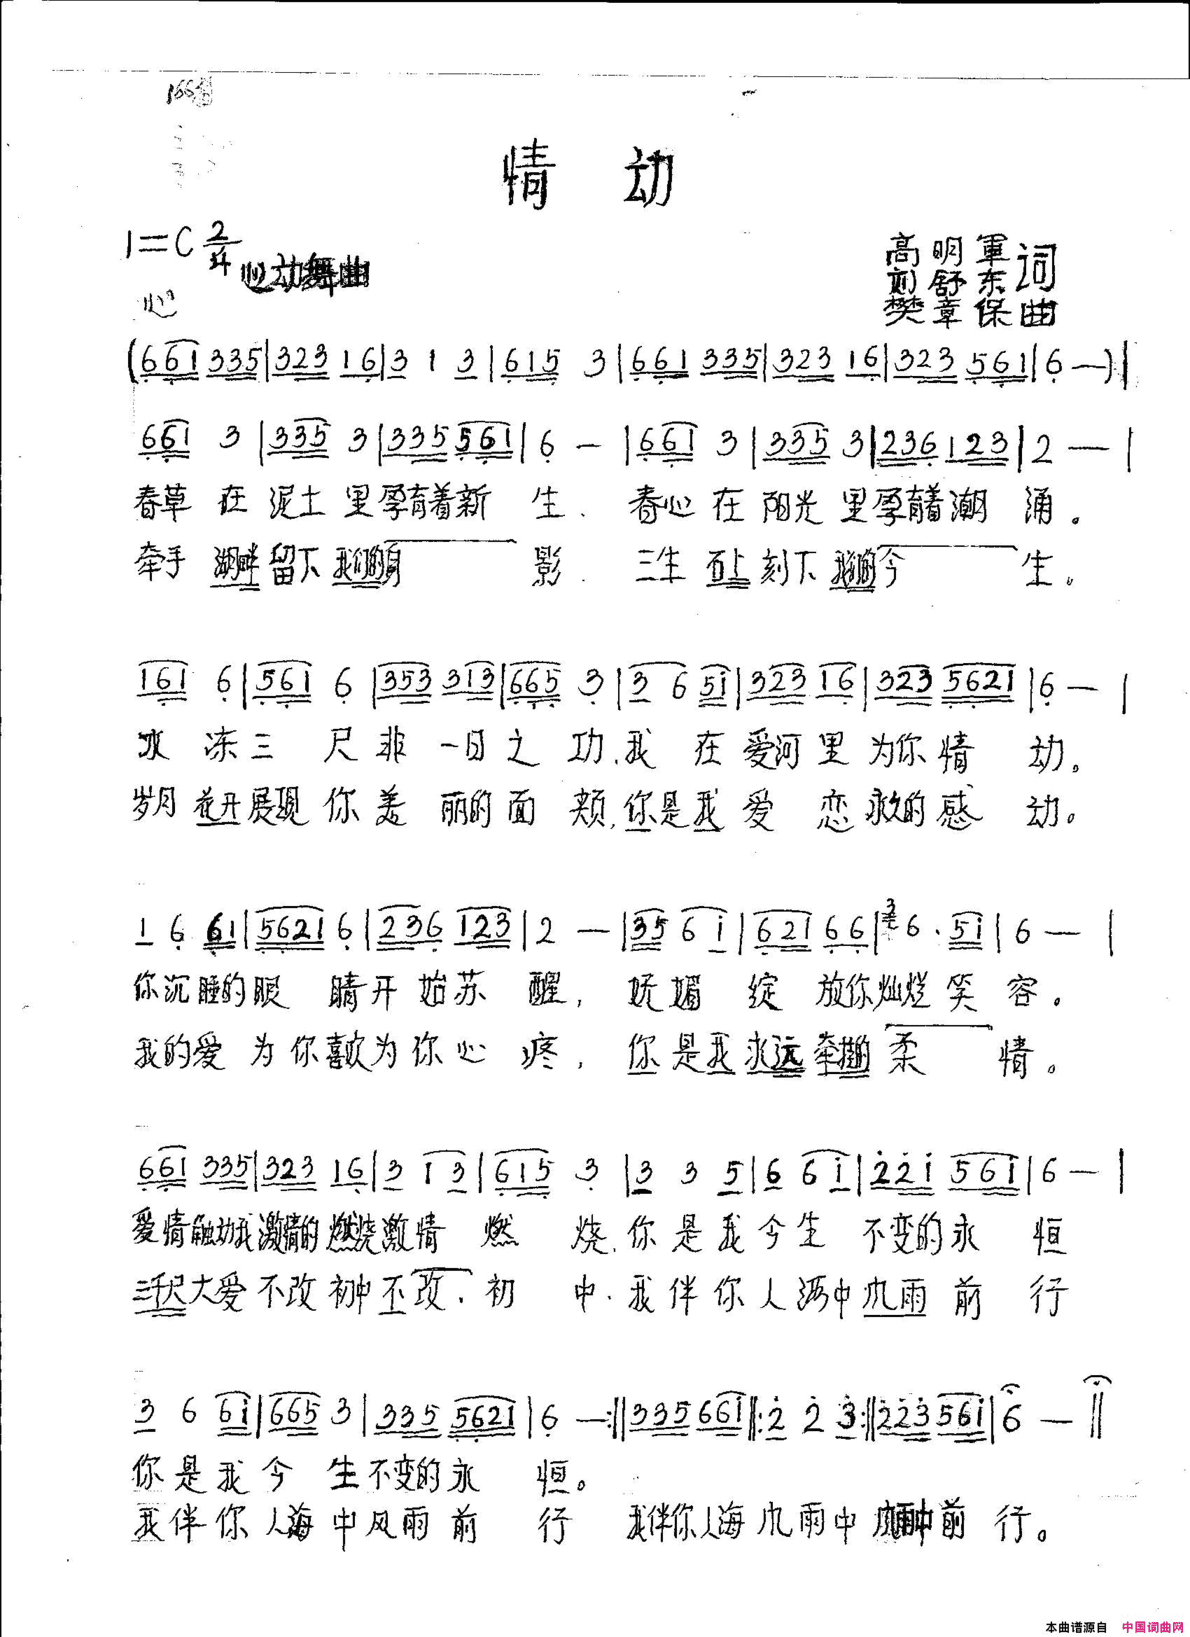 情 动
1=C 2/4
心动舞曲
高明軍
刘舒东 词
樊章保 曲
(661 335|323 16|3 1 3|615 3|661 335|323 16|323 561|6 —)|
661 3|335 3|335 561|6 —|661 3|335 3|236 123|2 —|
春草 在 泥土 里孕育着新 生. 春心在 阳光 里孕育着潮 涌。
牵手 湖畔 留下 我们的身 影. 三生 石上 刻下 我们的今 生。
161 6|561 6|353 313|665 3|3 6 5i|323 16|323 5621|6 —|
冰 冻三 尺非 一日之 功.我 在 爱河 里 为你 情 动。
岁月 花开展现 你 美 丽的 面 颊,你是我 爱 恋 永久的 感 动。
1 6 61|5621 6|236 123|2 —|35 6 i|621 66|6. 5i|6 —|
你沉睡的眼 睛开 始苏 醒, 妩媚 绽 放你灿烂 笑 容。
我的爱 为你喜欢为你心 疼, 你是我永远牵挂的 柔 情。
661 335|323 16|3 1 3|615 3|3 3 5|6 6 i|22i 56i|6 —|
爱情触动我激情的燃烧激情 燃 烧.你是我今生 不变的永 恒
三千尺大爱不改初中不改.初 中.我伴你人海中风雨 前 行
3 6 6i|665 3|335 5621|6 —:||335 66i||:2 2 3:||223 56i|6 —||
你是我今 生不变的永 恒。
我伴你人海中风雨前 行 我伴你人海风雨中风雨中前 行。
本曲谱源自 中国词曲网